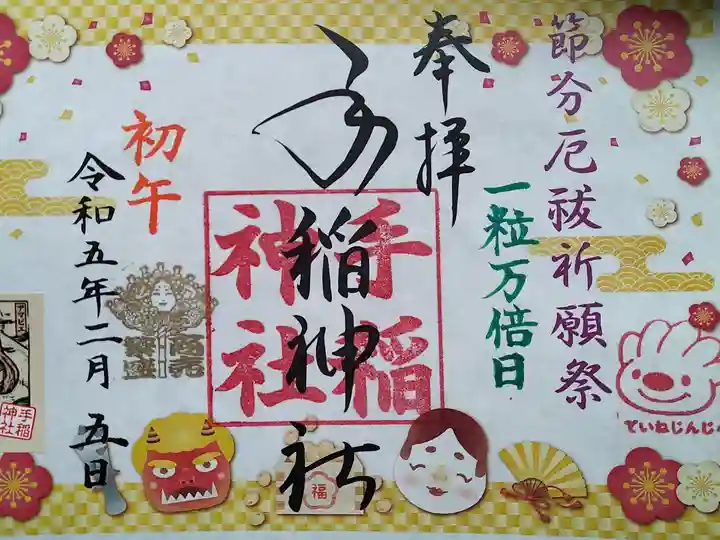 節分厄祓祈願祭
一粒万倍日
奉拝
手稲神社
手稲
神社
初午
令和五年二月五日
商売
繁盛
福
ていねじんじゃ
アマビエ
手稲
神社